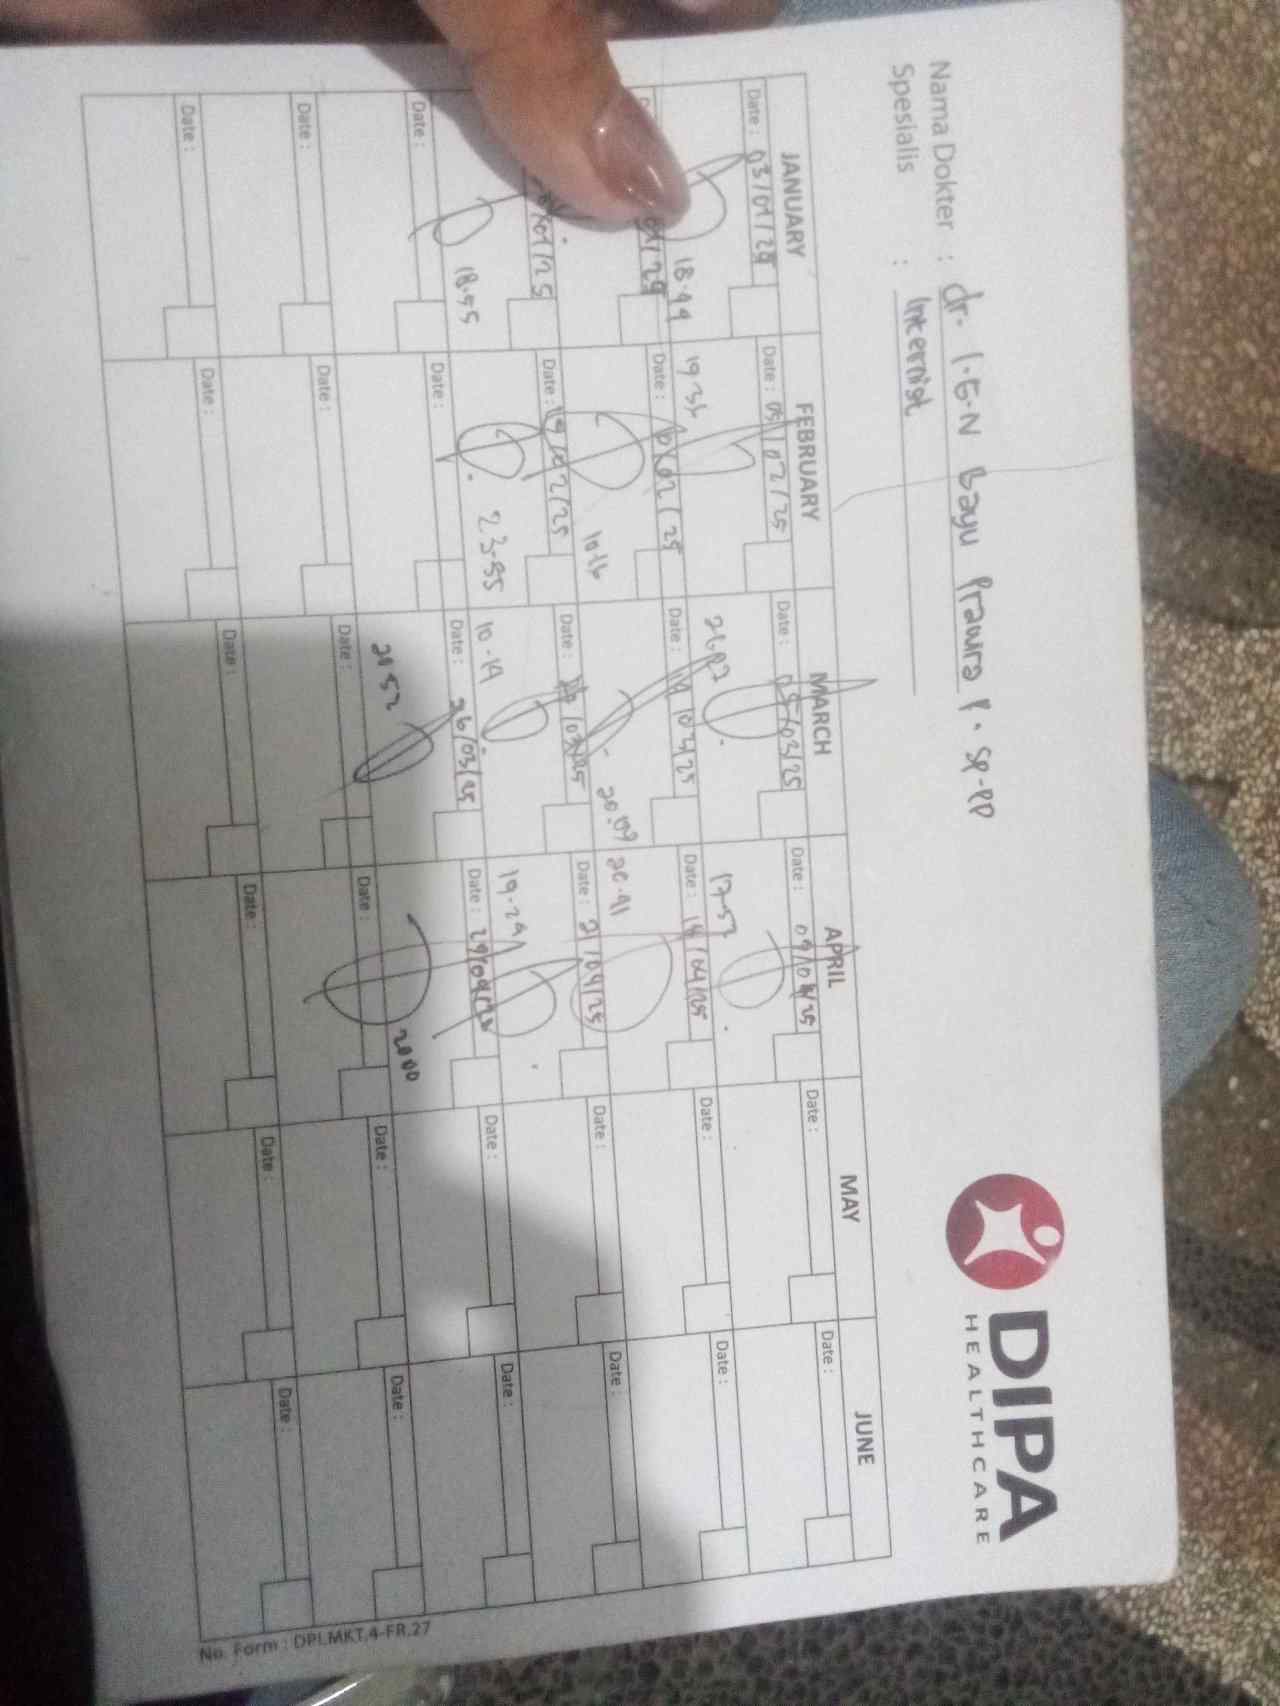 Nama Dokter : dr. I.G.N Bayu Prawira P. Sp-PD
Spesialis : Internist
DIPA
HEALTHCARE
JANUARY FEBRUARY MARCH APRIL MAY JUNE
Date : 03/01/25 Date : 05/02/25 Date : 05/03/25 Date : 09/04/25 Date : Date :
18.49 19 35 17-52
Date : /02/25 Date : 19/03/25 Date : 14/04/25 Date : Date :
10.16 20.09 20.41
/01/25 Date : 19/02/25 Date : /03/25 Date : 21/04/25 Date : Date :
18.55 23.55 10-19 19.29
Date : Date : Date : 26/03/25 Date : 29/04/25 Date : Date :
20 52 2000
Date : Date : Date : Date : Date : Date :
Date : Date : Date : Date : Date : Date :
No. Form : DPI.MKT.4-FR.27